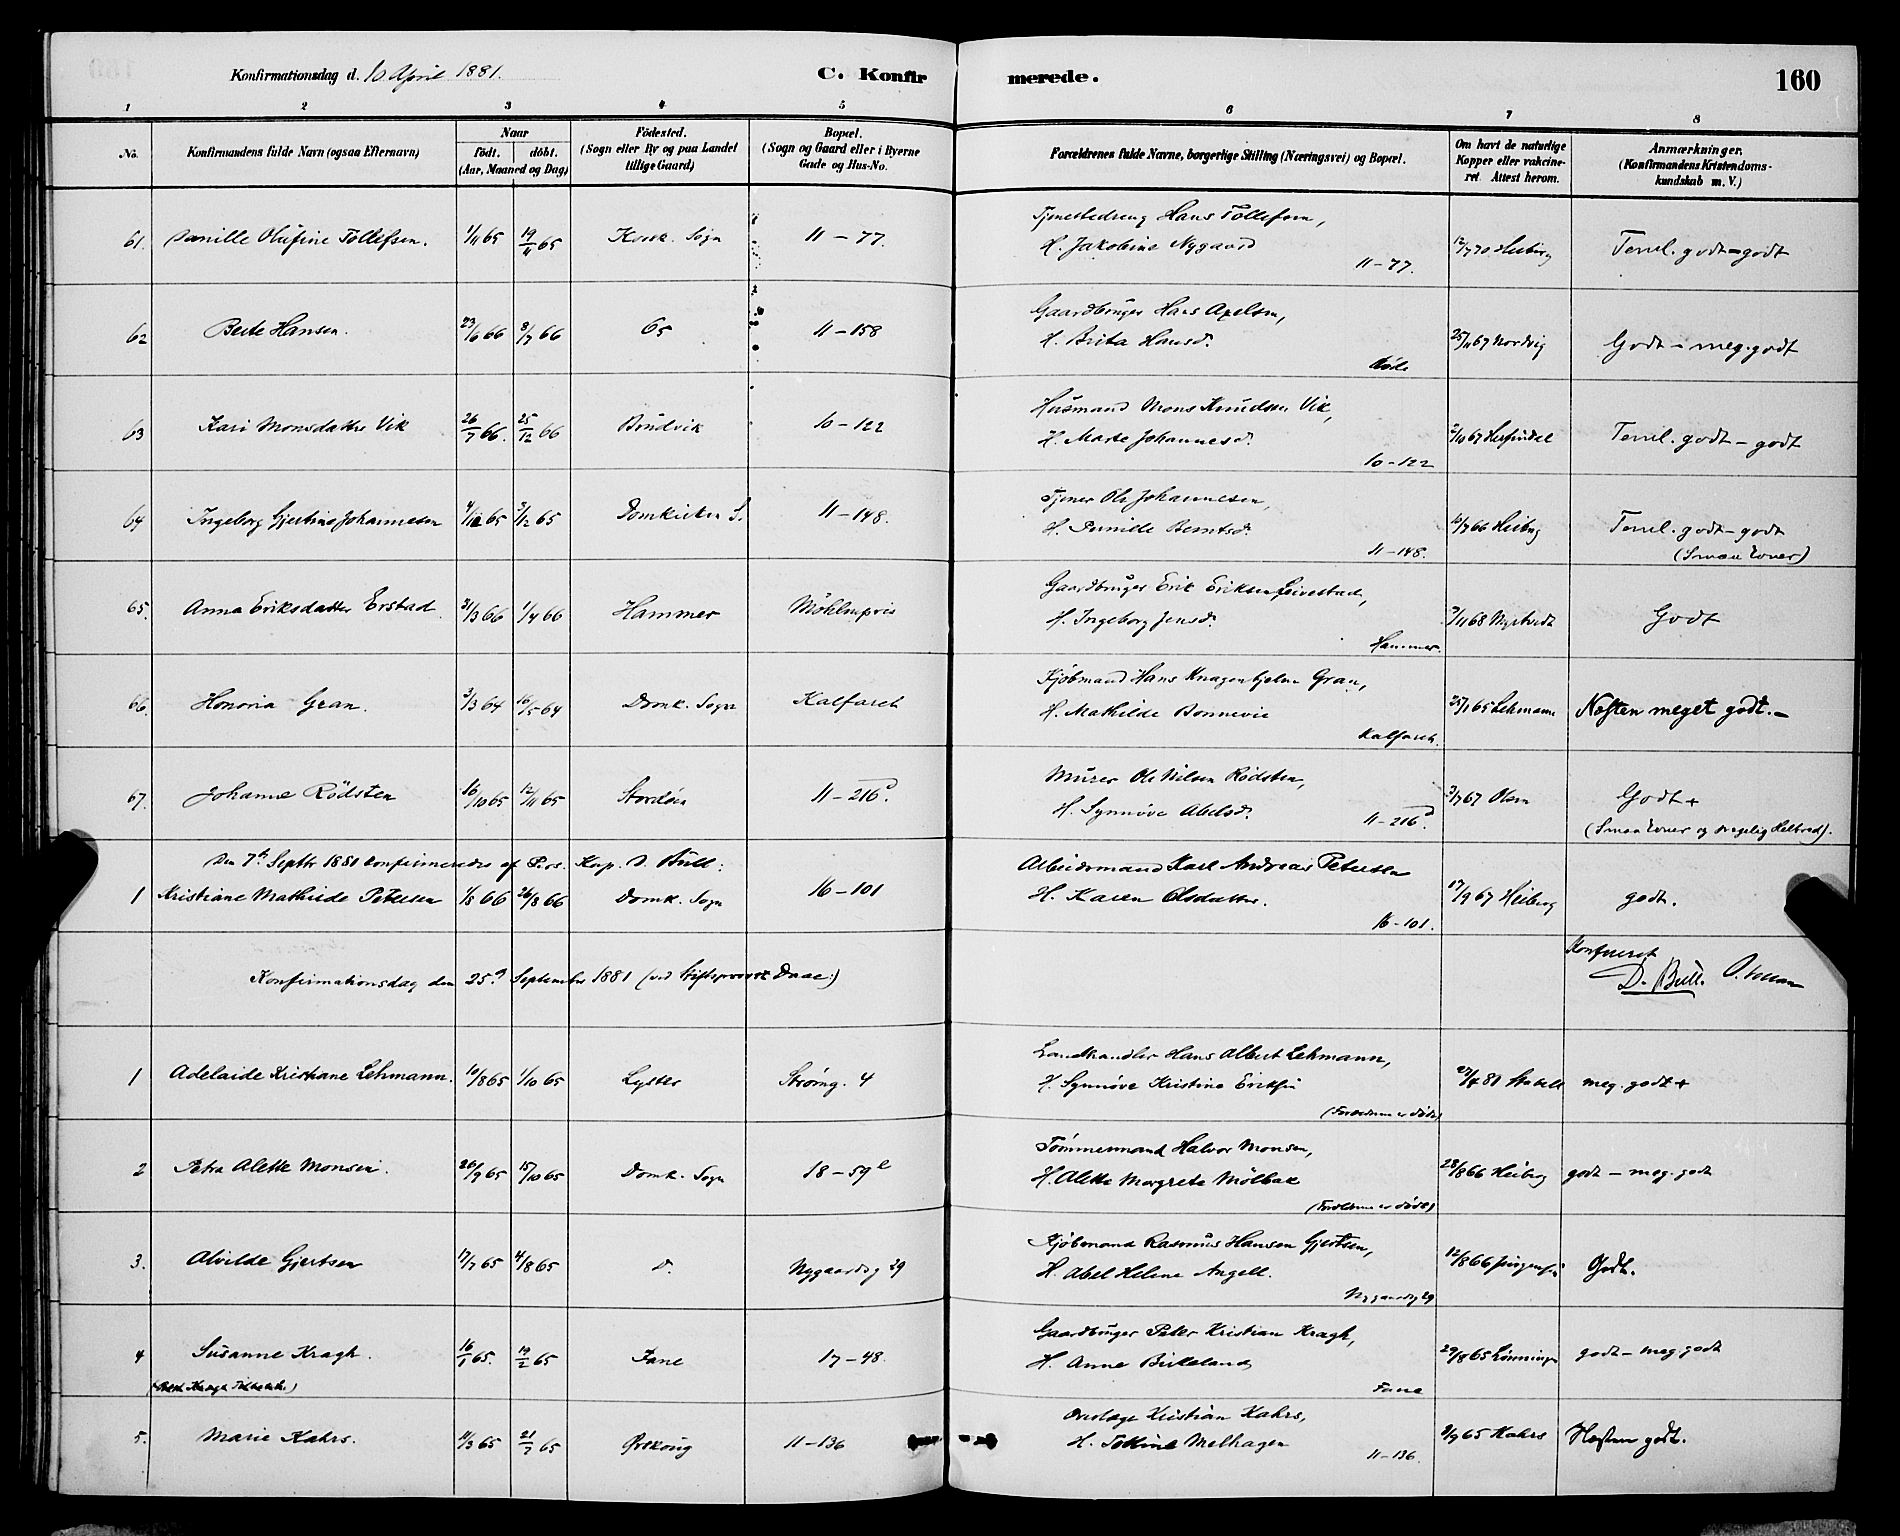 Konfirmationsdag d. 10 April 1881.
C. Konfirmerede.
160
1 2 3 4 5 6 7 8
No.
Konfirmandens fulde Navn (ogsaa Efternavn)
Naar
födt. döbt.
(Aar, Maaned og Dag)
Födested.
(Sogn eller By og paa Landet
tillige Gaard)
Bopæl.
(Sogn og Gaard eller i Byerne
Gade og Hus-No.
Forældrenes fulde Navne, borgerlige Stilling (Næringsvei) og Bopæl.
Om havt de naturlige
Kopper eller vakcine-
ret. Attest herom.
Anmærkninger.
(Konfirmandens Kristendoms-
kundskab m. V.)
61. Olufine Tollefsen. 1/11 65 19/11 65 Sogn 11-77. Hans Tollefsen,
H. Jakobine Nygaard
11-77.
12/7 70 Heiberg Temel. godt - godt
62 Berte Hansen. 23/6 66 8/7 66 Os 11-158 Gaardbruger Hans Axelsen,
H. Brita Hansd.
25/11 67 Nordvig Godt - meg. godt
63 Kari Monsdatter Vik 26/7 66. 25/12 66 10-122 Husmand Mons Knudsen Vik,
H. Marte Johannesd.
10-122
2/10 67 Herfindal Temel. godt - godt
64 Ingeborg Gjertine Johannesen 65 3/12 65 Domkirken S. 11-148. Tjener Ole Johannesen,
H. Berntsd.
11-148.
16/7 66 Heiberg Temel. godt - godt
(Smaa Evner)
65. Anna Eriksdatter Erstad 31/3 66 1/4 66 Hammer Möhlenpris Gaardbruger Erik Eriksen
H. Ingeborg Jensd.
Hammer.
3/11 68 Myrtvedt Godt
66. Honoria Gran. 3/3 64 16/5 64 Domk. Sogn Kalfaret Kjöbmand Hans Knagenhjelm Gran,
H. Mathilde Bonnevie
Kalfaret.
25/1 65 Lehmann Næsten meget godt.-
67. Johanne Rödsten 16/10 65 12/11 65 Stordöen 11-216 d. Murer Ole Nilsen Rödsten,
H. Synnöve Abelsd.
11-216 d.
3/7 67 Olsen Godt +
(Smaa Evner og svagelig Helbred).
Den 7de Septbr 1881 konfirmeredes af Pers. Kap. D. Bull:
1 Kristiane Mathilde Petersen 1/8 66 26/8 66 Domk. Sogn 16-101 Arbeidsmand Karl Andreas Petersen
H. Karen Olsdatter.
16-101.
17/9 67 Heiberg godt.
Konfirmationsdag den 25d September 1881 (ved Stiftsprovst Daae:)
D. Bull.
1 Adelaide Kristiane Lehmann. 10/8 65 1/10 65 Lyster Ströing. 4 Landhandler Hans Albert Lehmann,
H. Synnöve Kristine
(Forældrene er döde)
81 meg. godt +
2 Petra Alette Monsen. 26/9 65 15/10 65 Domk. Sogn 18-59 e Tömmermand Halvor Monsen,
H. Alette Margrete Mölbak
(Forældrene er döde)
28/8 66 Heiberg godt - meg. godt
3. Alvilde Gjertsen 17/7 65 4/8 65 D. Nygaardsg 29 Kjöbmand Rasmus Hansen Gjertsen,
H. Abel Helene Angell.
Nygaardsg 29
12/8 66 Godt.
4 Susanne Kragh. 16/1 65. 19/2 65 Fane 17-48. Gaardbruger Peter Kristian Kragh,
H. Anne Birkeland
Fane
29/8 65 godt - meg. godt
5. Marie Kahrs. 11/3 65 21/7 65 Örskoug 11-136 Kristian Kahrs,
H. Melhagen
11-136.
9/9 65 Kahrs Næsten godt.